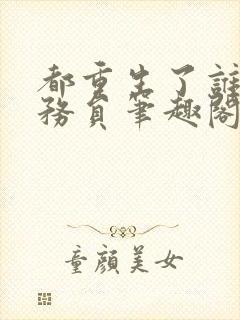 都重生了誰
務員筆趣閣
童顏美女